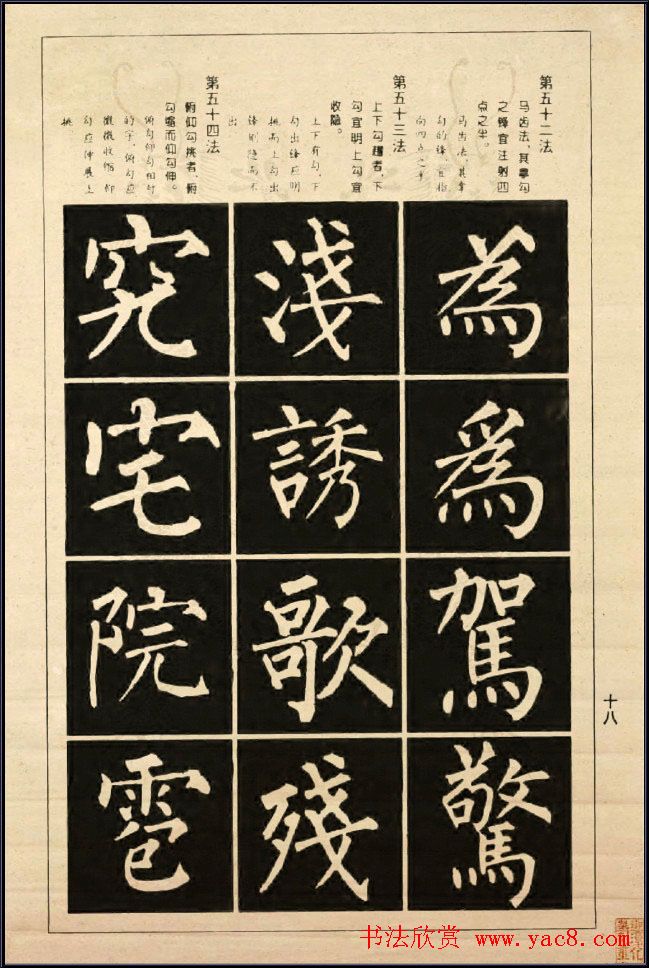 第五十二法
马齿法，其拿勾
之锋宜注射四
点之半。
马齿法，其拿
勾的锋宜指
向四点之半
為
爲
駕
驚
第五十三法
上下勾趯者，下
勾宜明上勾宜
收隐。
上下有勾，下
勾出锋应明
挑而上勾出
锋则隐而不
出
淺
誘
歌
殘
第五十四法
俯仰勾挑者，俯
勾缩而仰勾伸。
俯勾仰勾相对
的字，俯勾应
微微收缩仰
勾应伸展上
挑
究
宅
院
雹
十八
书法欣赏 www.yac8.com